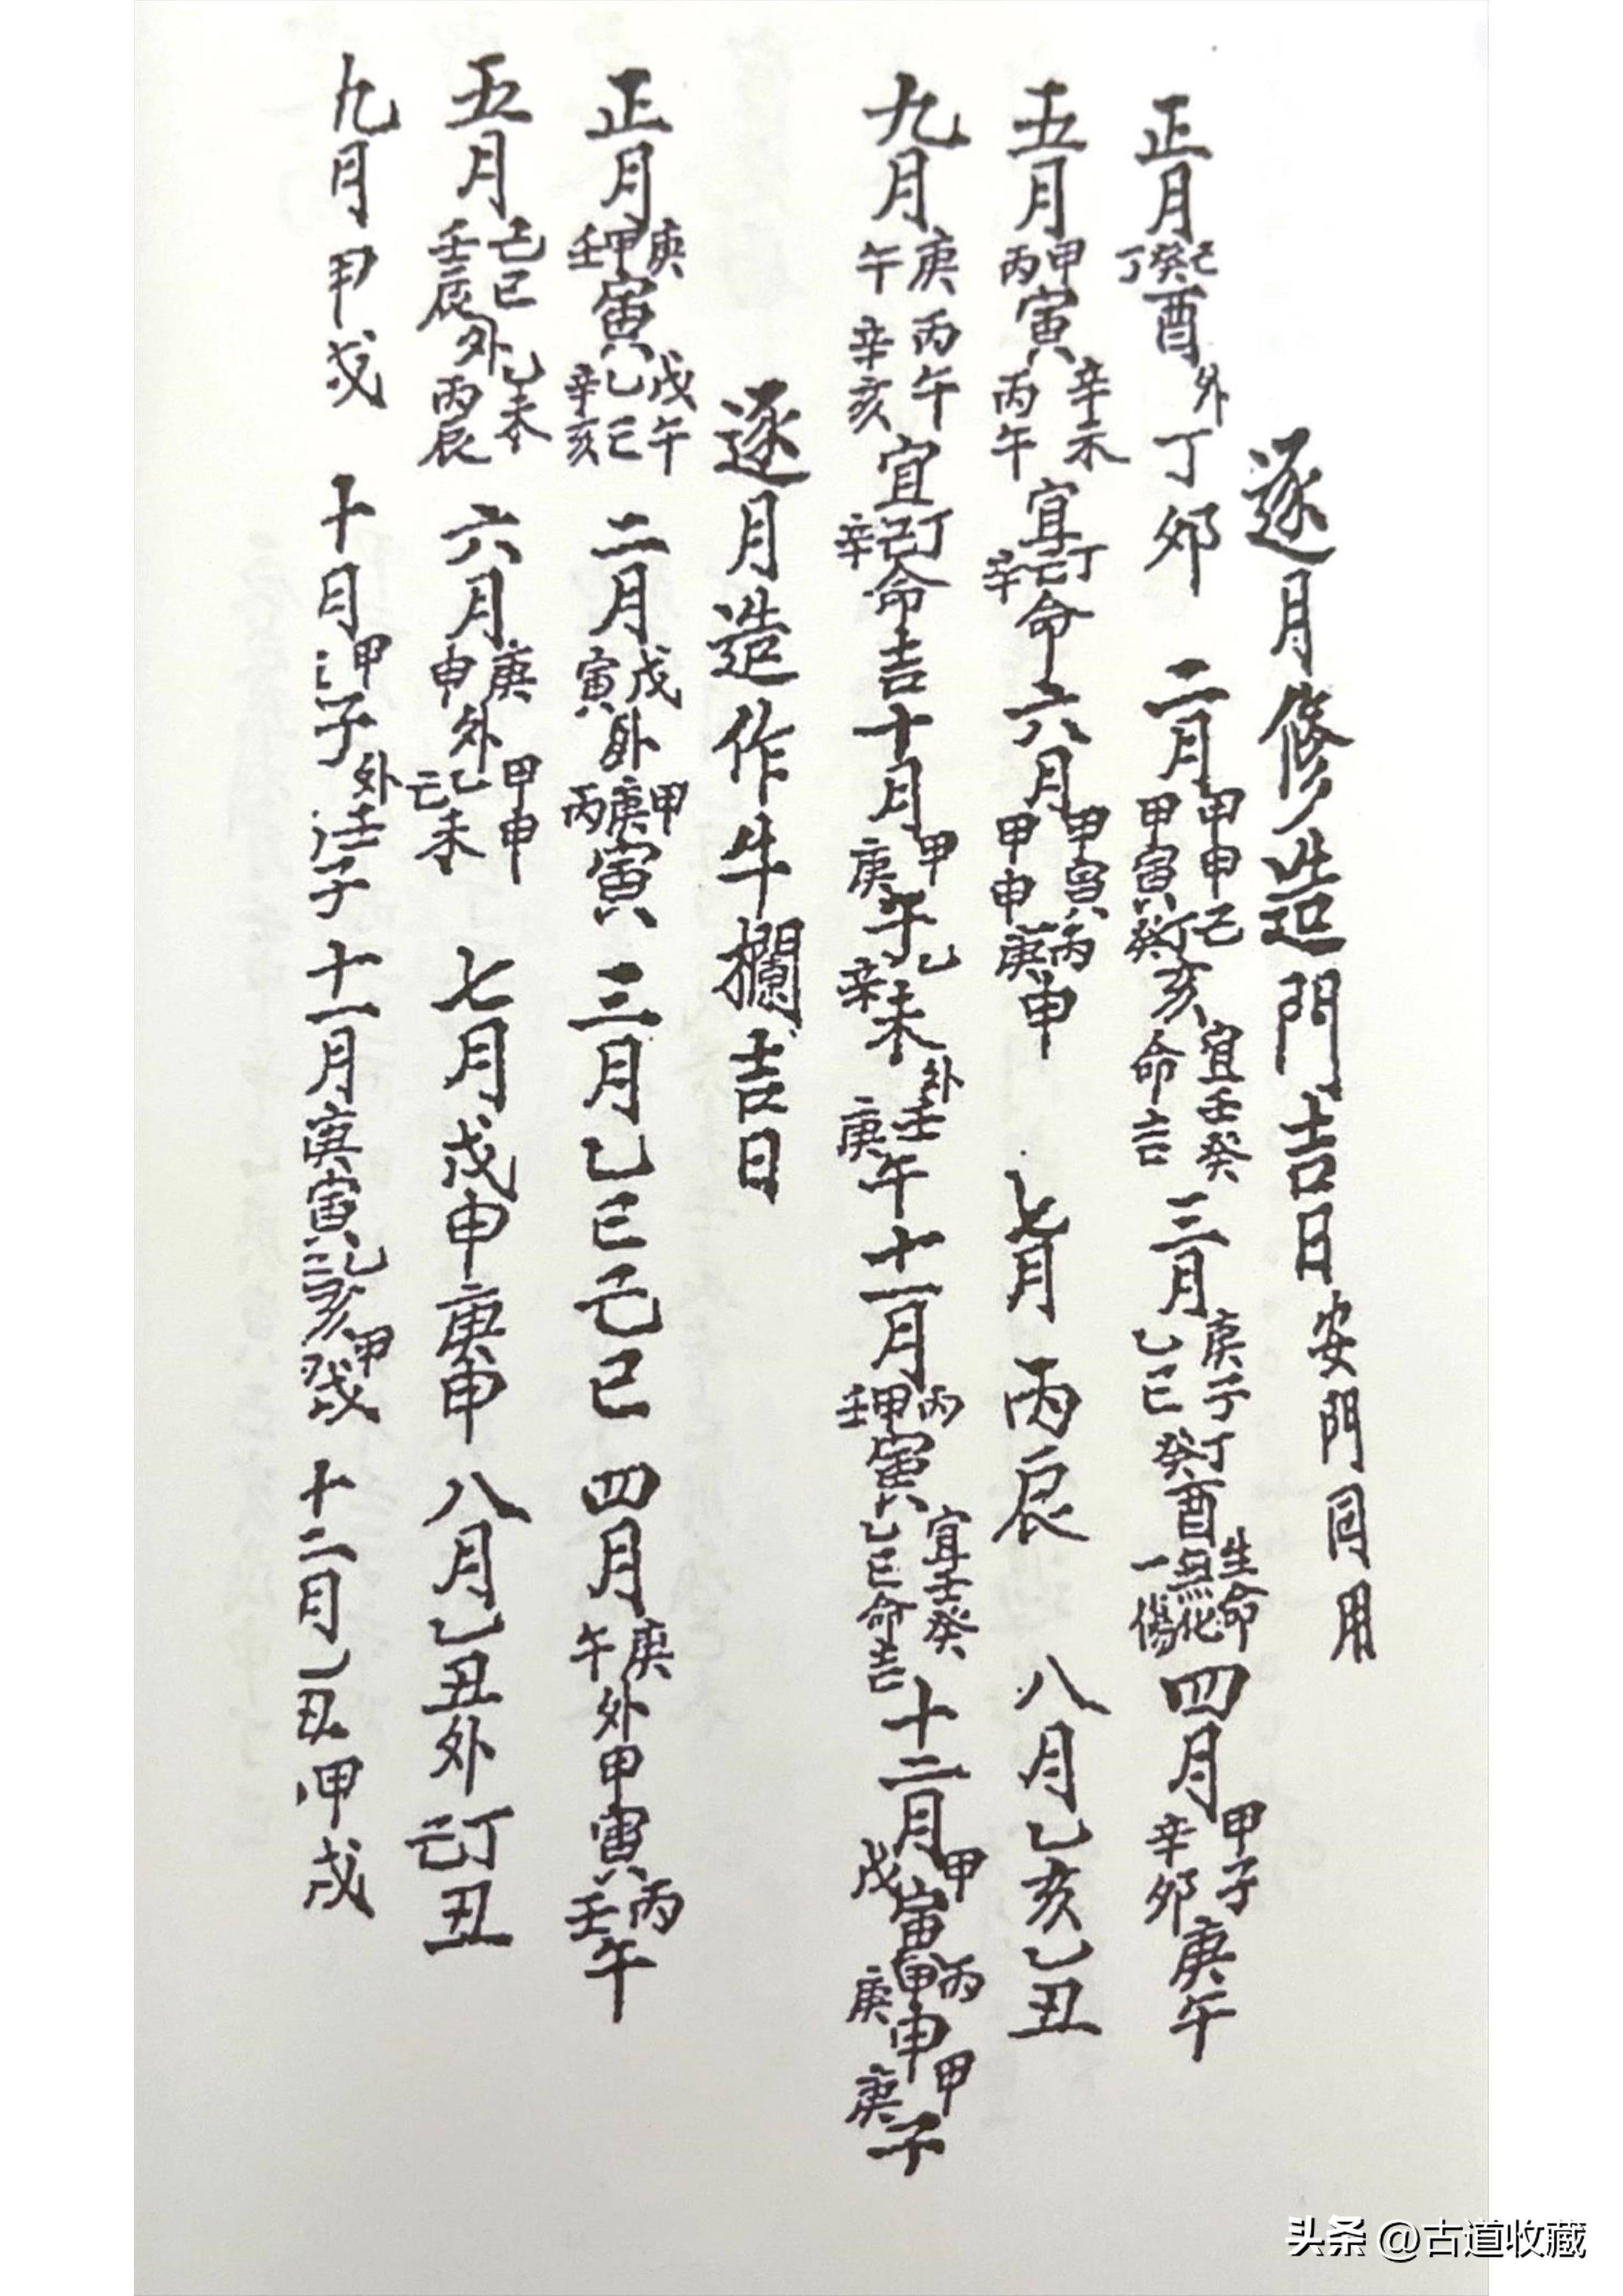 逐月修造門吉日安門同用
正月己癸丁酉外丁卯 二月甲申甲寅己丁癸亥宜壬癸命吉 三月庚子乙巳丁癸酉生命無化一傷 四月甲子辛卯庚午
五月甲丙寅辛未丙午宜丁己辛命 六月甲寅甲申丙庚申 七月丙辰 八月乙亥乙丑
九月庚午丙午辛亥宜丁己辛命吉 十月甲庚午乙辛未外壬庚午 十一月丙甲壬寅宜壬癸乙巳命吉 十二月甲戊寅丙甲庚申甲庚子
逐月造作牛欄吉日
正月庚甲壬寅戊午乙巳辛亥 二月戊寅外甲庚丙寅 三月乙巳己巳 四月庚午外甲寅丙壬午
五月己巳壬辰外乙未丙辰 六月庚申外甲申乙己未 七月戊申庚申 八月乙丑外丁己丑
九月甲戌 十月甲子外壬子 十一月庚寅乙亥甲戌 十二月乙丑甲戌
头条 @古道收藏